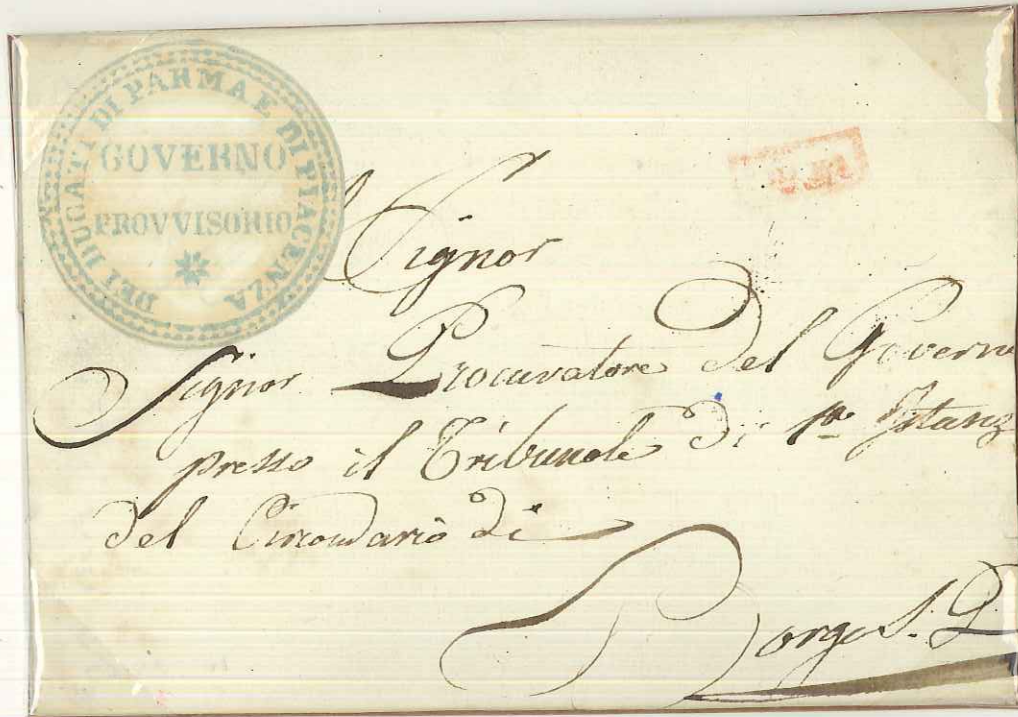 DEI DUCATI DI PARMA E DI PIACENZA
GOVERNO
PROVVISORIO
Al Signor
Signor Procuratore del Governo
presso il Tribunale di 1ª Istanz
del Circondario di
Borgo S. D